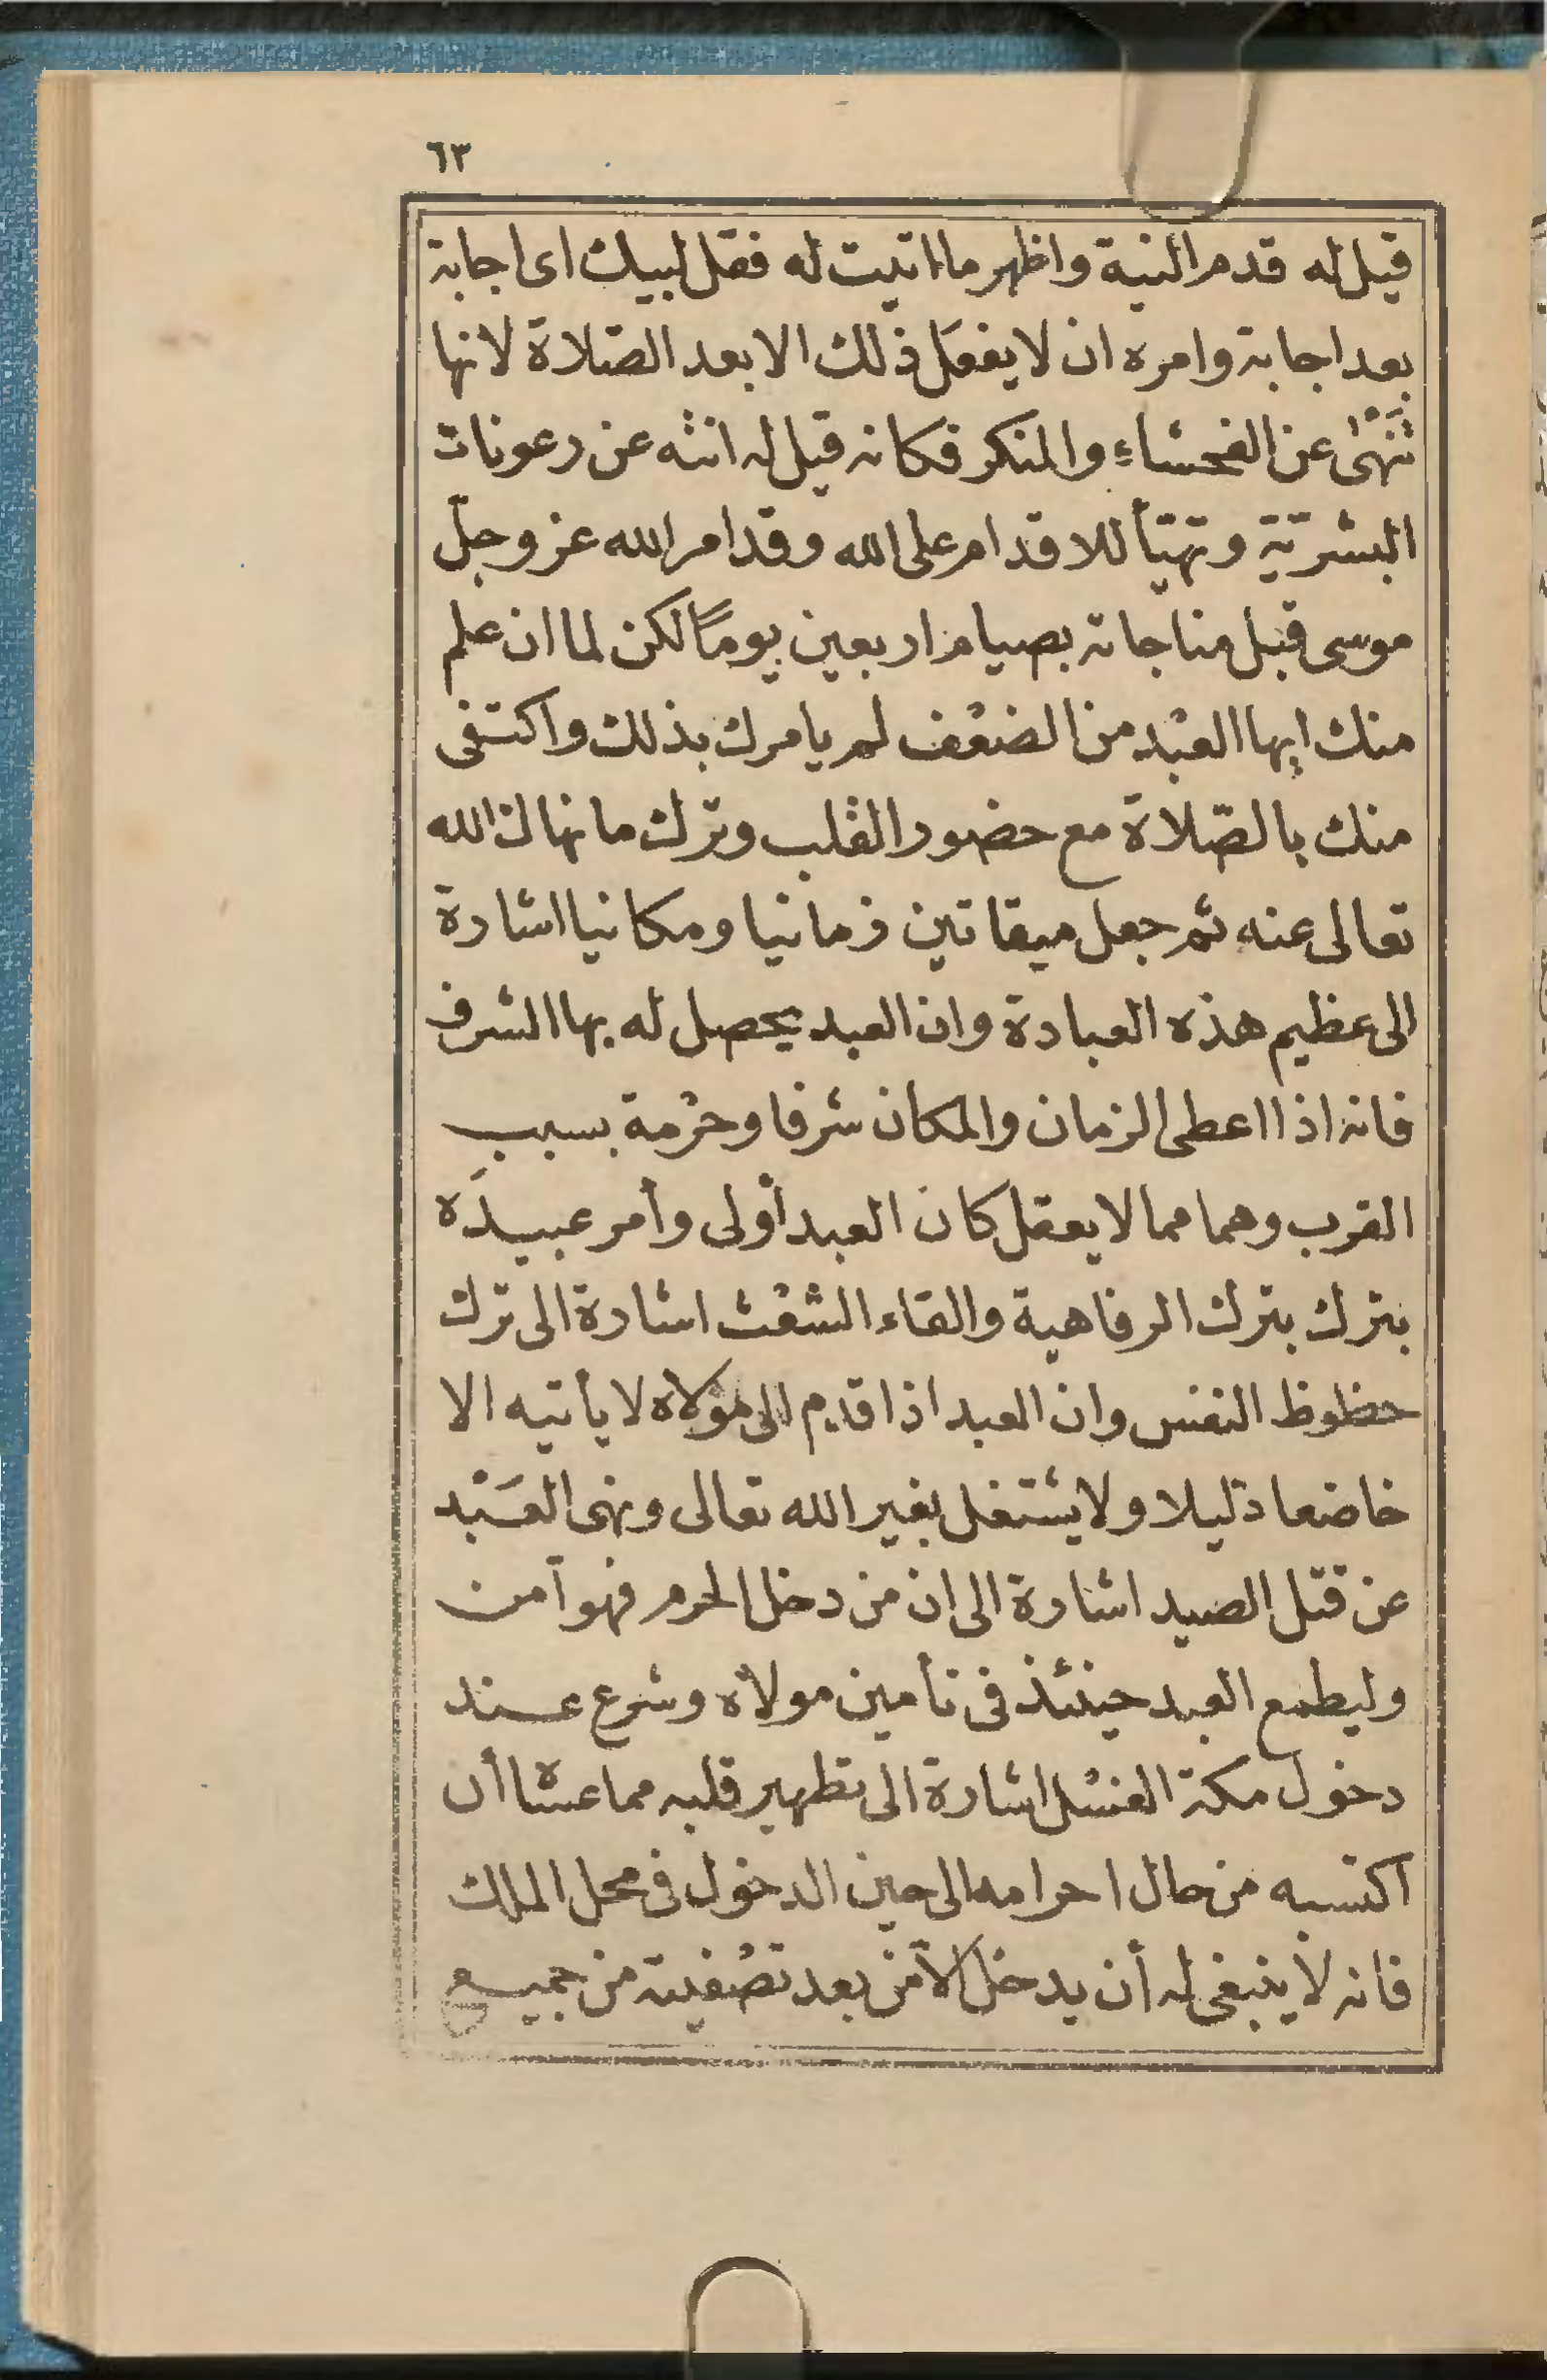 ٦٣
قيل له قدم النية واظهر ما اتيت له فقل لبيك اى اجابة
بعد اجابة وامره ان لا يفعل ذلك الا بعد الصّلاة لانها
تَنْهٰى عن الفحشاء والمنكر فكانه قيل له انته عن رعونات
البشريّة وتهيّأ للاقدام على الله وقد امر الله عز وجلّ
موسى قبل مناجاته بصيام اربعين يومًا لكن لما ان علم
منك ايها العبْد من الضعْف لم يامرك بذلك واكتفى
منك بالصّلاة مع حضور القلب وترك ما نهاك الله
تعالى عنه ثم جعل ميقاتين زمانيا ومكانيا اشارة
الى عظيم هذه العبادة وان العبد يحصل له بها الشرف
فانه اذا اعطى الزمان والمكان شرفا وحرْمة بسبب
القرب وهما مما لا يعقل كان العبد أولى وأمر عبيدَه
بترك بترك الرفاهية والقاء الشعْث اشارة الى ترك
حظوظ النفس وان العبد اذا قدم الى مولاه لا يأتيه الا
خاضعا ذليلا ولا يشتغل بغير الله تعالى ونهى العَبْد
عن قتل الصيد اشارة الى ان من دخل الحرم فهو آمن
وليطمع العبد حينئذ فى تأمين مولاه وشرع عند
دخول مكة الغسْل اشارة الى تطهير قلبه مما عساه أن
اكتسبه من حال احرامه الى حين الدخول فى محل الملك
فانه لا ينبغى له أن يدخل الا من بعد تصْفيته من جميع